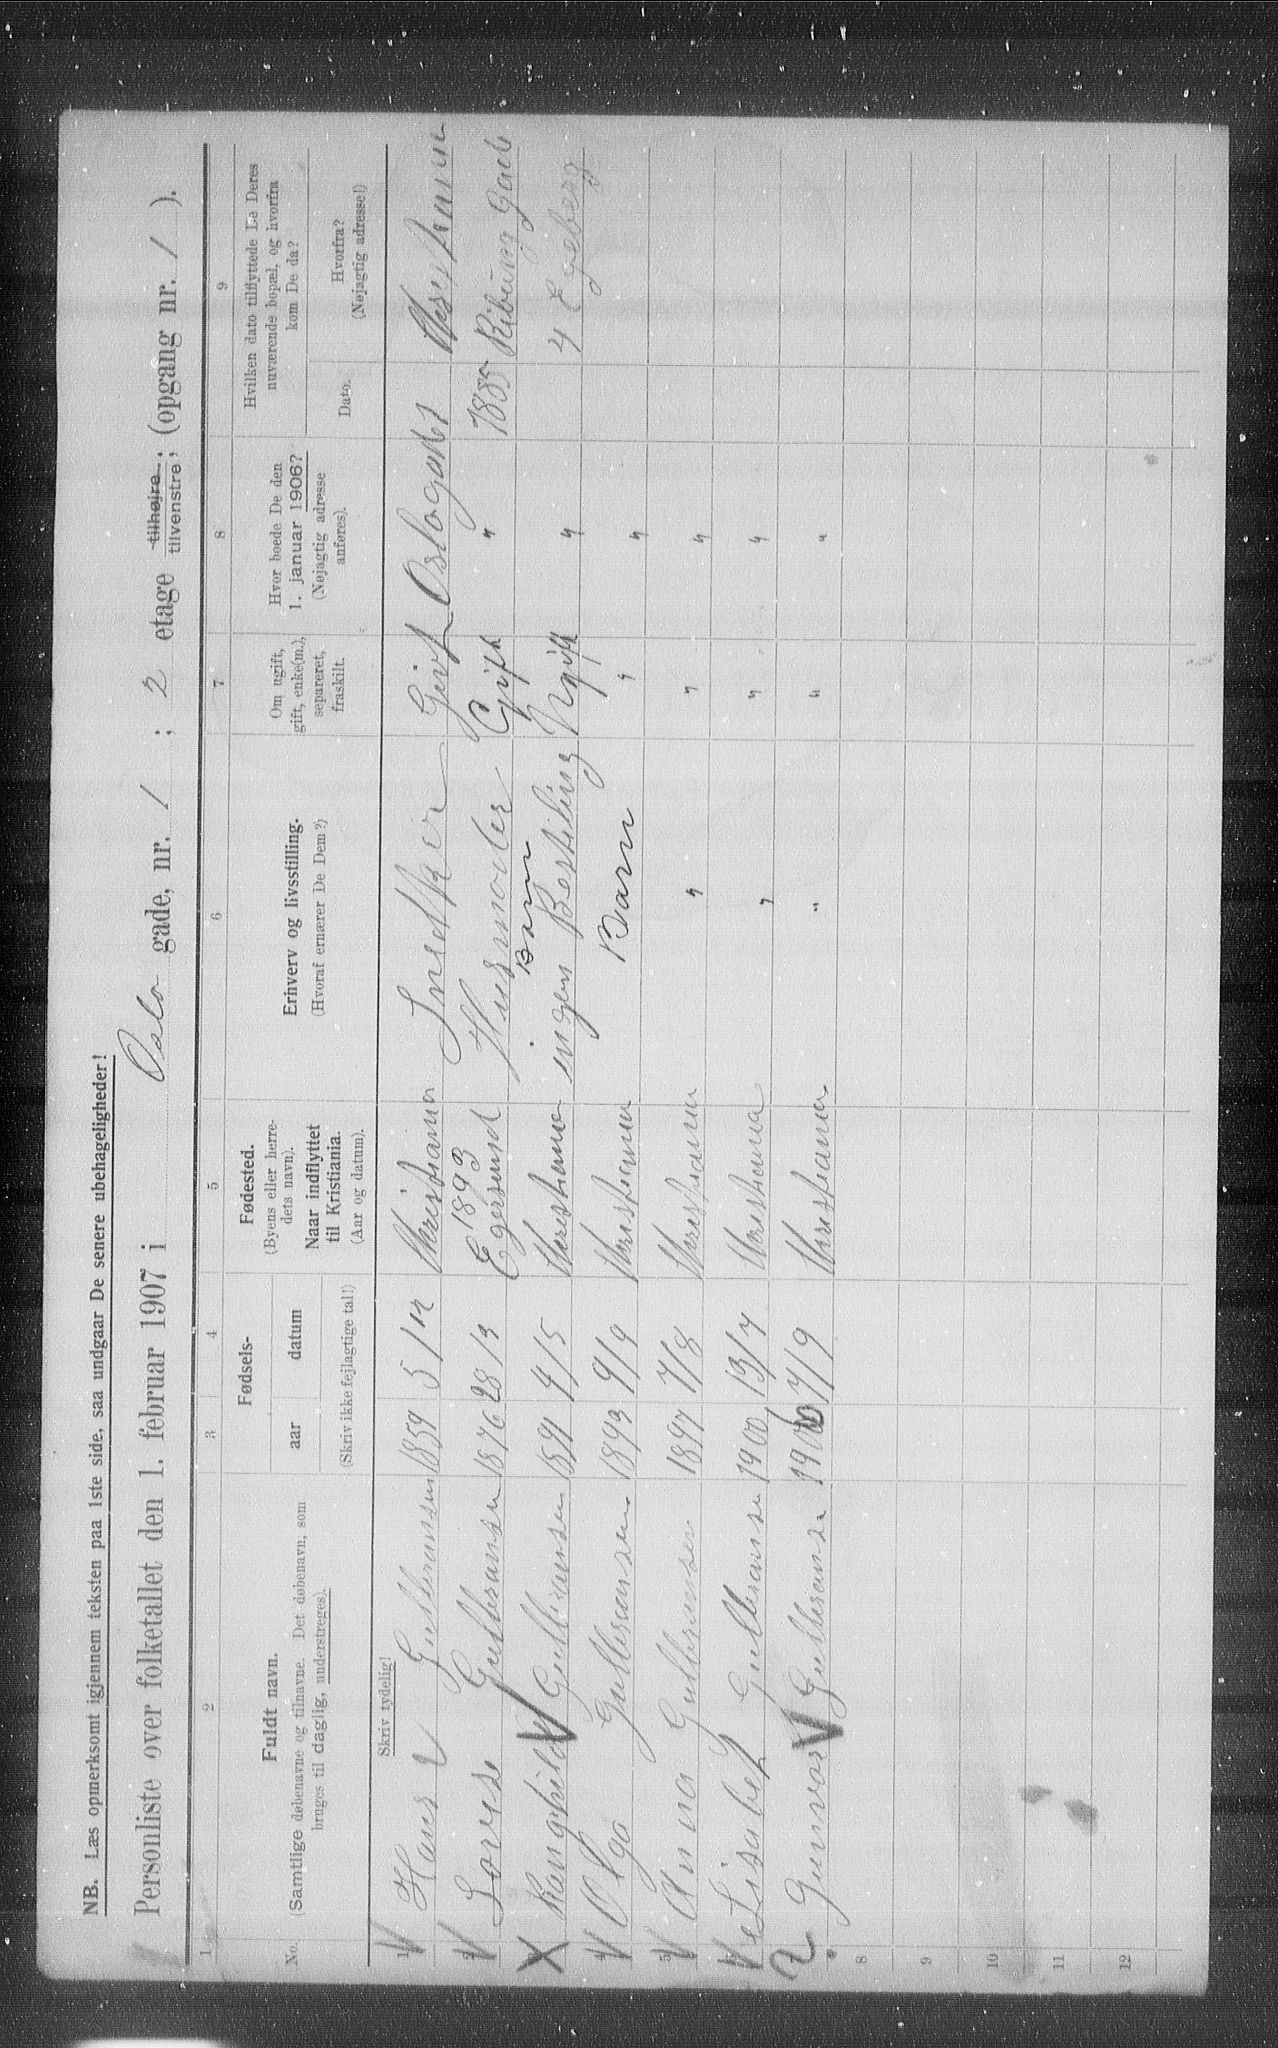 NB. Læs opmerksomt igjennem teksten paa 1ste side, saa undgaar De senere ubehageligheder!
Personliste over folketallet den 1. februar 1907 i Oslo gade, nr. 1 ; 2 etage tilhøjre, tilvenstre; (opgang nr. 1 ).
1 2 3 4 5 6 7 8 9
No.
Fuldt navn.
(Samtlige døbenavne og tilnavne. Det døbenavn, som
bruges til daglig, understreges).
Fødsels-
aar datum
(Skriv ikke fejlagtige tal!)
Fødested.
(Byens eller herre-
dets navn).
Naar indflyttet
til Kristiania.
(Aar og datum).
Erhverv og livsstilling.
(Hvoraf ernærer De Dem?)
Om ugift,
gift, enke(m.),
separeret,
fraskilt.
Hvor boede De den
1. januar 1906?
(Nøjagtig adresse
anføres).
Hvilken dato tilflyttede De Deres
nuværende bopæl, og hvorfra
kom De da?
Dato.
Hvorfra?
(Nøjagtig adresse!)
Skriv tydelig!
1 Hans Gulbransen 1859 5/12 Kristiania Snedker Gift Oslogade 1
2 Lovise Gulbransen 1876 28/3 1893 Egersund Husmoder Gift " 1885 gade
Barn
3 Ranghild Gulbransen 1891 4/5 Kristiania ingen Bestiling Ugift " 4 Egeberg
4 Olga Gulbransen 1893 9/9 Kristiania Barn " "
5 Anna Gulbransen 1897 7/8 Kristiania " " "
6 Elisabet Gulbransen 1900 13/7 Kristiania " " "
7 Gunvor Gulbransen 1906 7/9 Kristiania " " "
8
9
10
11
12